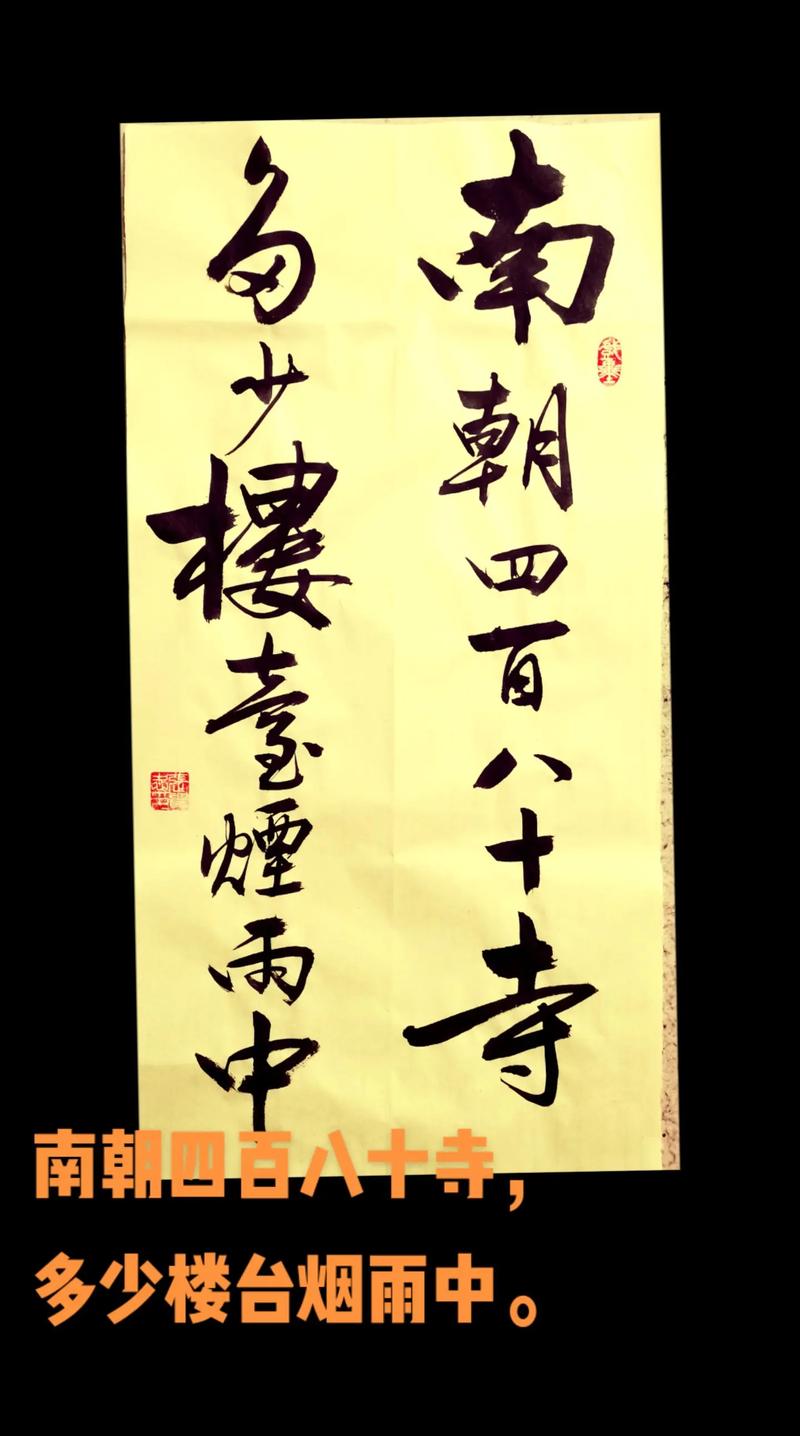 南朝四百八十寺
多少樓臺煙雨中
南朝四百八十寺，
多少楼台烟雨中。